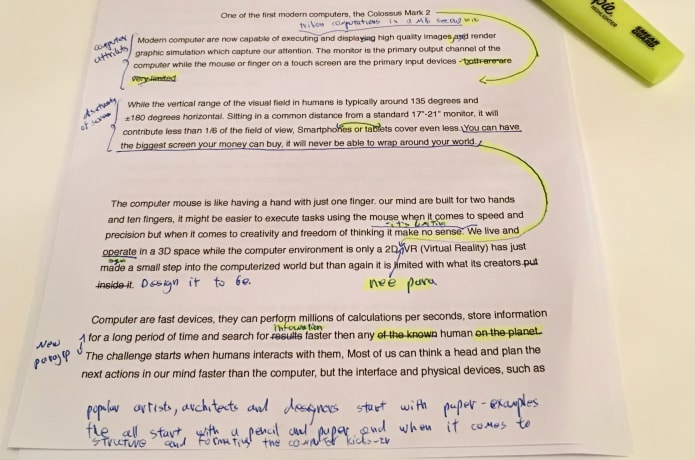 One of the first modern computers, the Colossus Mark 2
computations in a
computer
Modern computer are now capable of executing and displaying high quality images and render
graphic simulation which capture our attention. The monitor is the primary output channel of the
computer while the mouse or finger on a touch screen are the primary input devices - both are are
very limited.
While the vertical range of the visual field in humans is typically around 135 degrees and
±180 degrees horizontal. Sitting in a common distance from a standard 17"-21" monitor, it will
of screen
contribute less than 1/6 of the field of view, Smartphones or tablets cover even less. You can have
the biggest screen your money can buy, it will never be able to wrap around your world.
The computer mouse is like having a hand with just one finger. our mind are built for two hands
and ten fingers, it might be easier to execute tasks using the mouse when it comes to speed and
precision but when it comes to creativity and freedom of thinking it make no sense. We live and
operate in a 3D space while the computer environment is only a 2D. VR (Virtual Reality) has just
made a small step into the computerized world but than again it is limited with what its creators put
inside it. Design it to be.
Computer are fast devices, they can perform millions of calculations per seconds, store information
information
New
for a long period of time and search for results faster then any of the known human on the planet.
The challenge starts when humans interacts with them, Most of us can think a head and plan the
next actions in our mind faster than the computer, but the interface and physical devices, such as
popular artists, architects and designers start with paper - examples
the all start with a pencil and paper and when it comes to
structure and formating the computer kicks-in